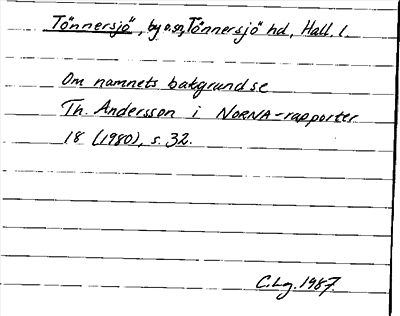 Tönnersjö, by o. sn, Tönnersjö hd, Hall. l.
Om namnets bakgrund se
Th. Andersson i NORNA-rapporter
18 (1980), s. 32.
C.Lg. 1987.